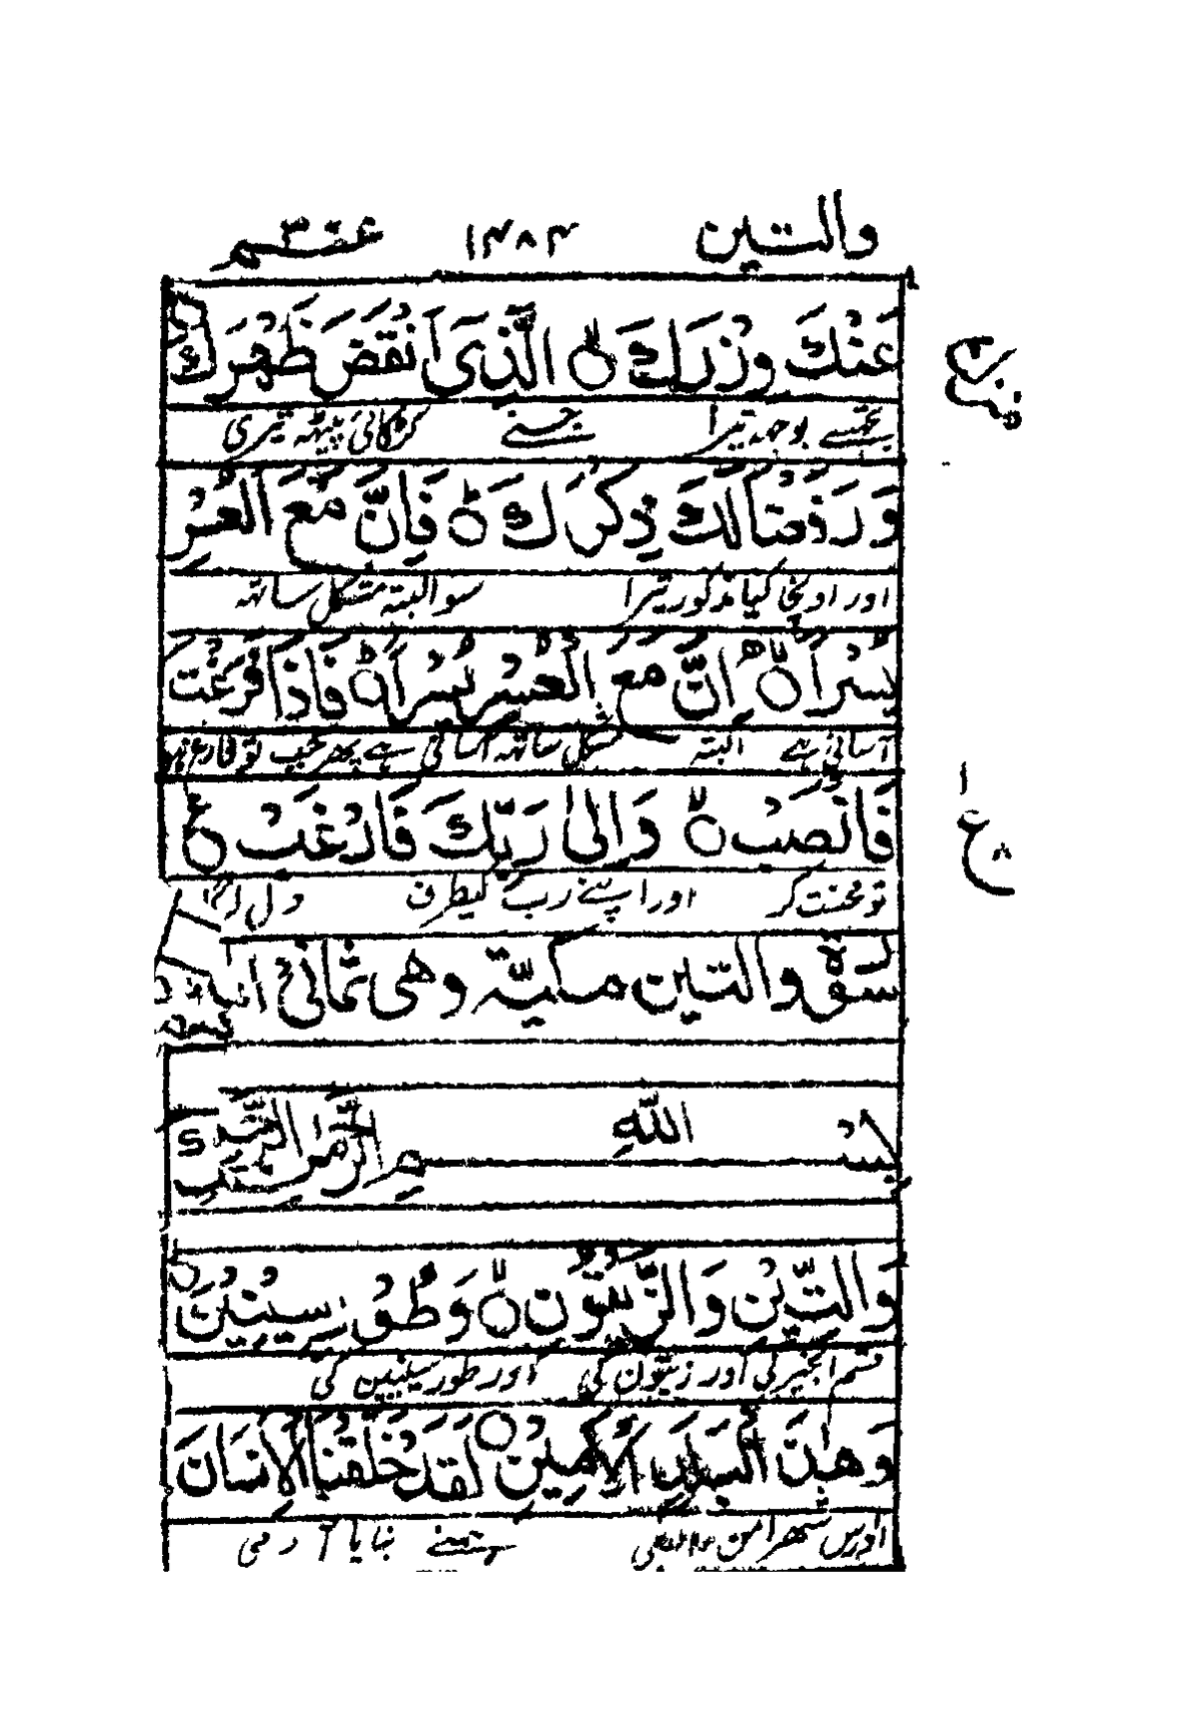 والتين ١٤٨٤ عم ٣٠
عَنْكَ وِزْرَكَ ۝ الَّذِىْٓ اَنْقَضَ ظَهْرَكَ
تجھسے بوجھ تیرا جسنے کڑکائی پیٹھ تیری
وَرَفَعْنَا لَكَ ذِكْرَكَ ۝ فَاِنَّ مَعَ الْعُسْرِ
اور اونچا کیا مذکور تیرا سو البتہ مشکل ساتھ
يُسْرًا ۝ اِنَّ مَعَ الْعُسْرِ يُسْرًا ۝ فَاِذَا فَرَغْتَ
آسانی ہے البتہ مشکل ساتھ آسانی ہے پھر جب تو فارغ ہو
فَانْصَبْ ۝ وَاِلٰى رَبِّكَ فَارْغَبْ ۝ ع
تو محنت کر اور اپنے رب کیطرف دل لگا
سورة والتين مكية وهى ثمانى ايات
بِسْمِ اللّٰهِ الرَّحْمٰنِ الرَّحِيْمِ
وَالتِّيْنِ وَالزَّيْتُوْنِ ۝ وَطُوْرِ سِيْنِيْنَ ۝
قسم انجیر کی اور زیتون کی اور طور سینین کی
وَهٰذَا الْبَلَدِ الْاَمِيْنِ ۝ لَقَدْ خَلَقْنَا الْاِنْسَانَ
اور اس شہر امن والے کی ہمنے بنایا آدمی